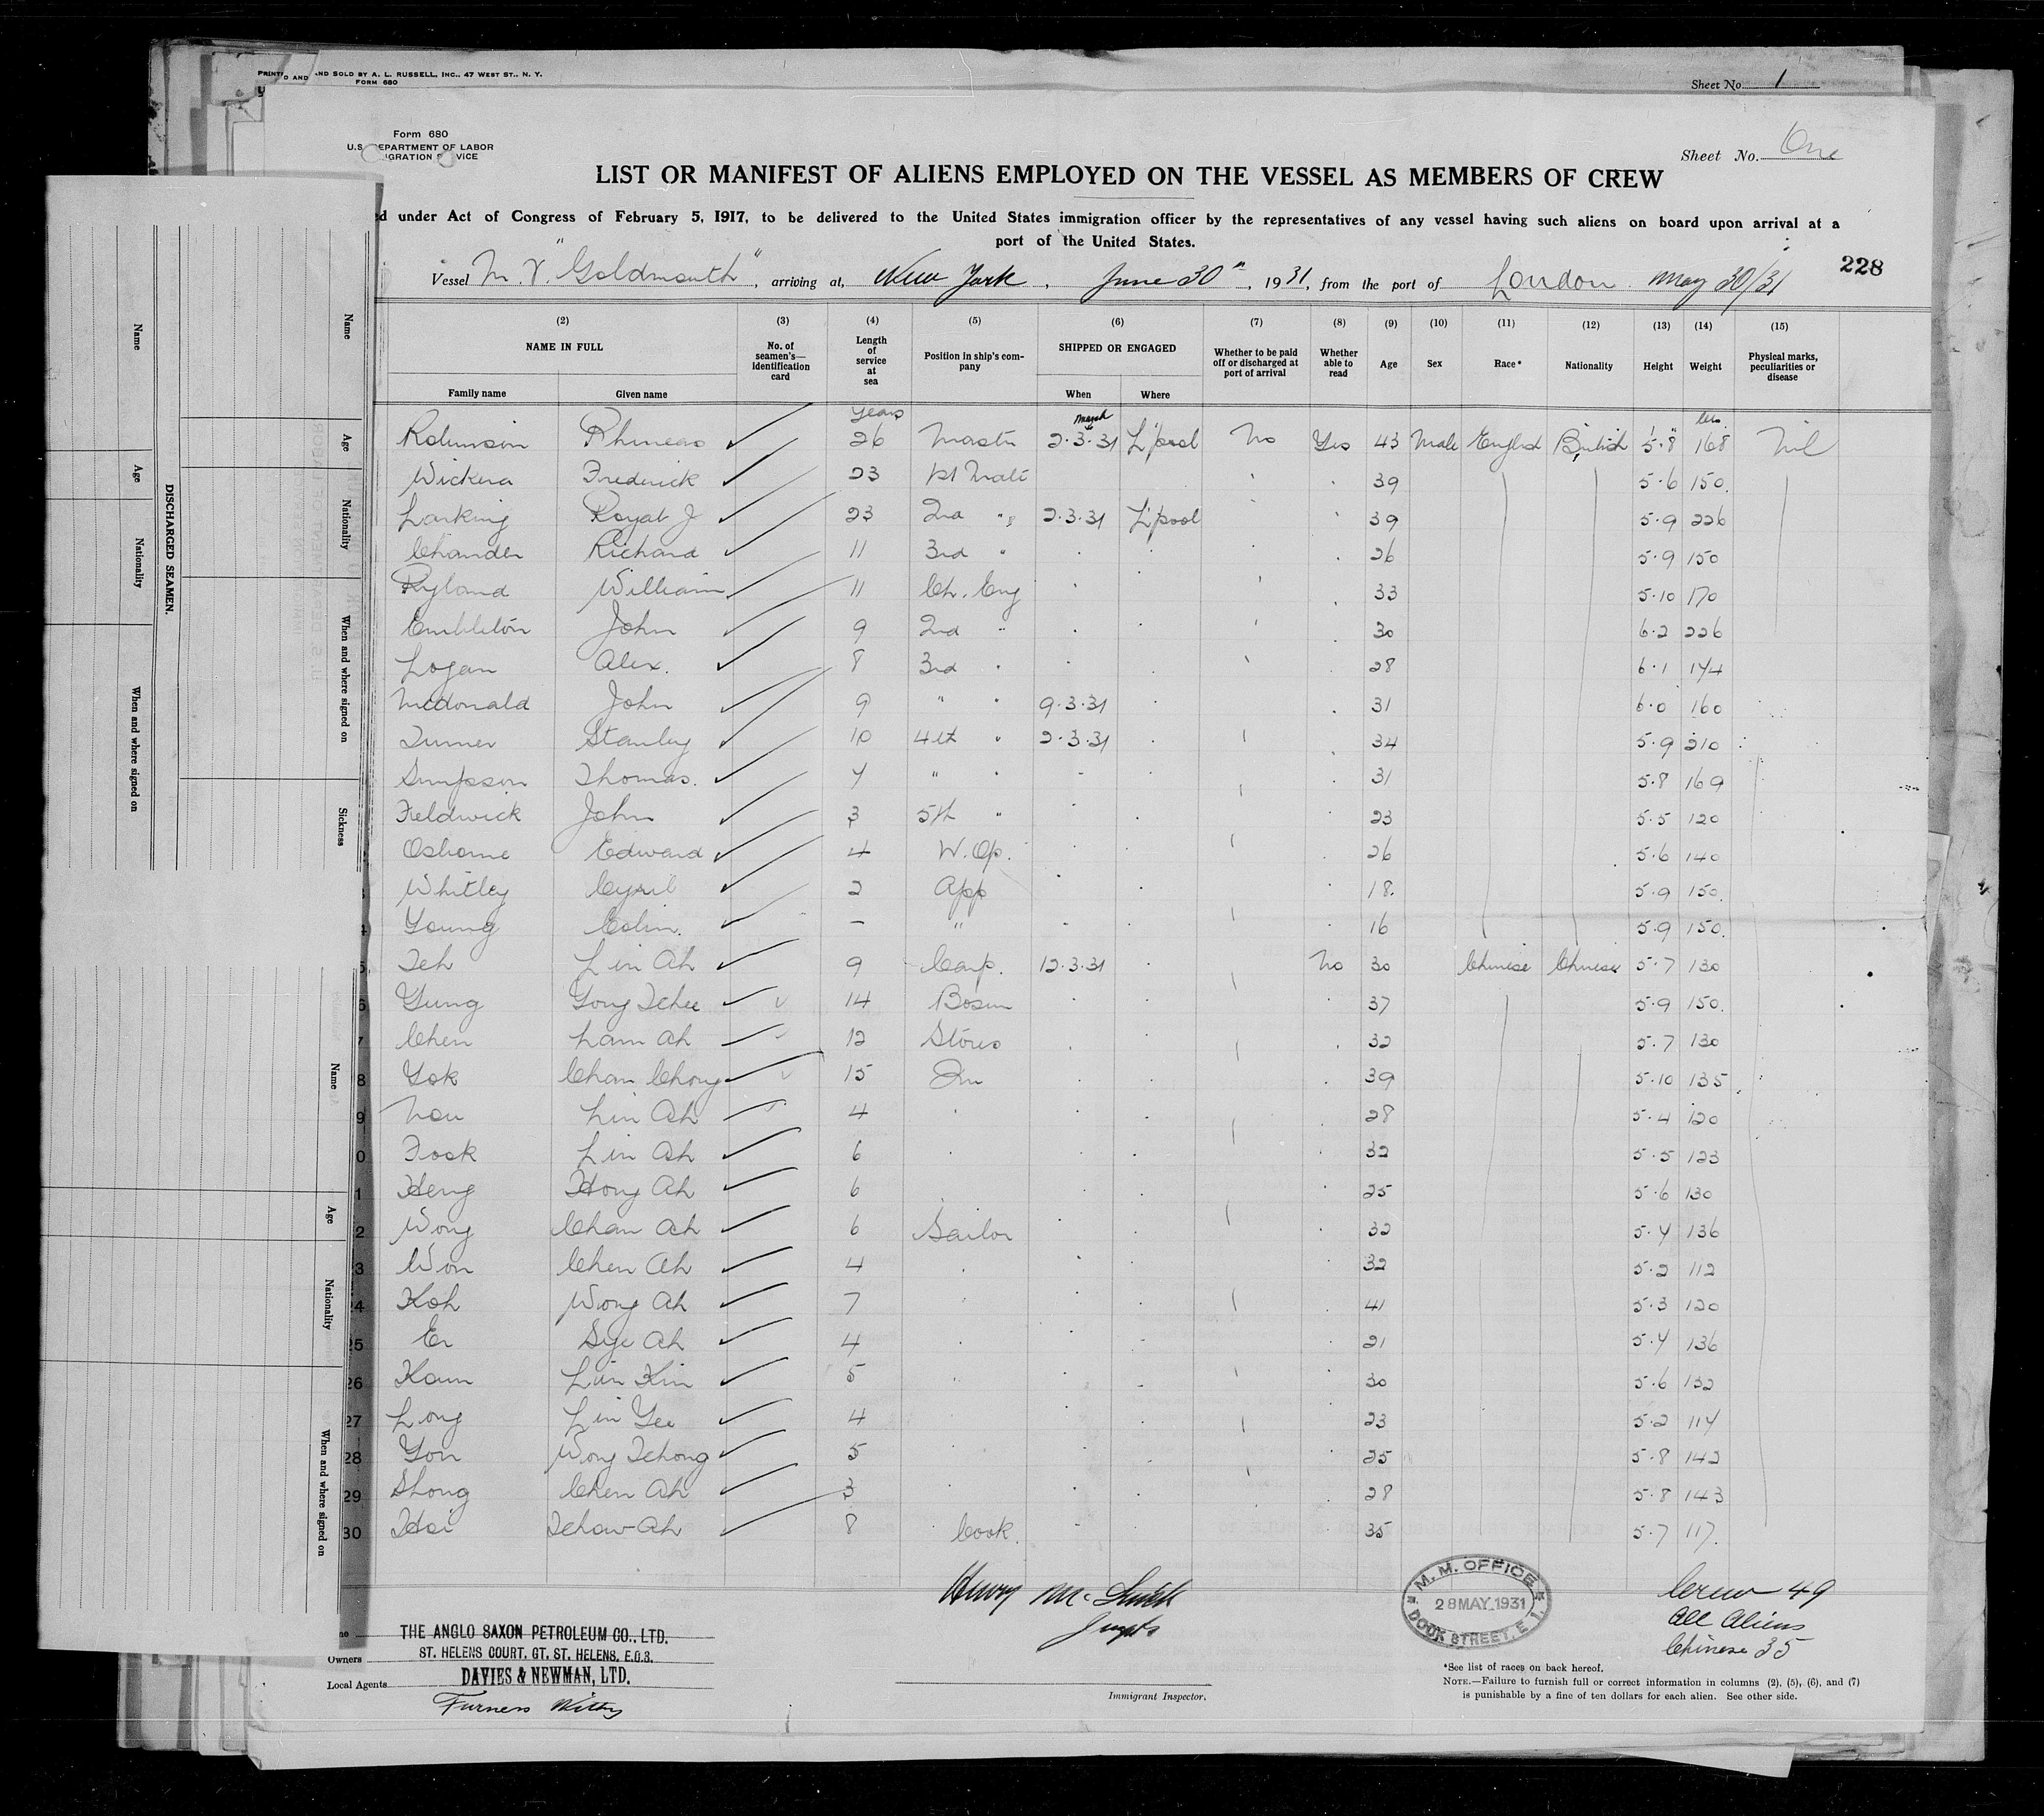 PRINTED AND SOLD BY A. L. RUSSELL, INC., 47 WEST ST., N. Y.
FORM 680
Sheet No. 1
Form 680
U.S. DEPARTMENT OF LABOR
IGRATION VICE
Sheet No. One
LIST OR MANIFEST OF ALIENS EMPLOYED ON THE VESSEL AS MEMBERS OF CREW
d under Act of Congress of February 5, 1917, to be delivered to the United States immigration officer by the representatives of any vessel having such aliens on board upon arrival at a
port of the United States.
228
Vessel M.V. "Goldmouth", arriving at, New York, June 30th, 1931, from the port of London May 30/31
(2) (3) (4) (5) (6) (7) (8) (9) (10) (11) (12) (13) (14) (15)
NAME IN FULL
Family name Given name
No. of seamen's identification card
Length of service at sea
Position in ship's company
SHIPPED OR ENGAGED
When Where
Whether to be paid off or discharged at port of arrival
Whether able to read
Age
Sex
Race*
Nationality
Height
Weight
Physical marks, peculiarities or disease
years March lbs
Robinson Phineas ✓ 26 Master 2.3.31 L'pool No Yes 43 Male English British 5'.8" 168 Nil
Wickera Frederick ✓ 23 1st Mate 39 5.6 150.
Larking Royal J ✓ 23 2nd " 2.3.31 L'pool 39 5.9 226
Chander Richard ✓ 11 3rd " 26 5.9 150
Ryland William ✓ 11 Ch. Eng 33 5.10 170
Embleton John ✓ 9 2nd " 30 6.2 226
Logan Alex. ✓ 8 3rd " 28 6.1 174
McDonald John ✓ 9 " " 9.3.31 31 6.0 160
Turner Stanley ✓ 10 4th " 2.3.31 34 5.9 210
Simpson Thomas. ✓ 7 " " 31 5.8 169
Fieldwick John ✓ 3 5th " 23 5.5 120
Osborne Edward ✓ 4 W. Op. 26 5.6 140
Whitley Cyril ✓ 2 App 18. 5.9 150.
Young Colin. ✓ – " 16 5.9 150.
Teh Lin Ah ✓ 9 Carp. 12.3.31 No 30 Chinese Chinese 5.7 130
6 Yung Yong Tchee ✓ 14 Bosun 37 5.9 150.
7 Chen Lam Ah ✓ 12 Stores 32 5.7 130
8 Yok Chan Chong ✓ 15 Qm 39 5.10 135
9 Nou Lin Ah ✓ 4 28 5.4 120
0 Fook Lin Ah ✓ 6 32 5.5 123
1 Heng Hong Ah ✓ 6 25 5.6 130
2 Wong Chan Ah ✓ 6 Sailor 32 5.4 136
3 Won Chen Ah ✓ 4 32 5.2 112
24 Koh Wong Ah ✓ 7 41 5.3 120
25 Er Sye Ah ✓ 4 21 5.4 136
26 Kaun Lin Kin ✓ 5 30 5.6 132
27 Long Lin Yee ✓ 4 23 5.2 114
28 Yon Wong Tchong ✓ 5 25 5.8 142
29 Shong Chen Ah ✓ 3 28 5.8 143
30 Hoi Tchow Ah ✓ 8 Cook. 35 5.7 117.
THE ANGLO SAXON PETROLEUM CO., LTD.
Owners ST. HELENS COURT, GT. ST. HELENS, E.C.3.
Local Agents DAVIES & NEWMAN, LTD.
Furness Withy
Immigrant Inspector.
M. M. OFFICE
28 MAY 1931
DOCK STREET, E.1.
Crew 49
All Aliens
Chinese 35
*See list of races on back hereof.
NOTE.—Failure to furnish full or correct information in columns (2), (5), (6), and (7)
is punishable by a fine of ten dollars for each alien. See other side.
DISCHARGED SEAMEN.
Name Age Nationality When and where signed on
Name Age Nationality When and where signed on Sickness
Name Age Nationality When and where signed on